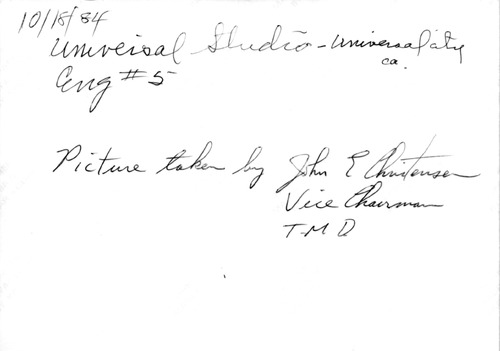 10/18/84
Universal Studio - Universal City
ca.
Eng #5
Picture taken by John E Christensen
Vice Chairman
T-M D